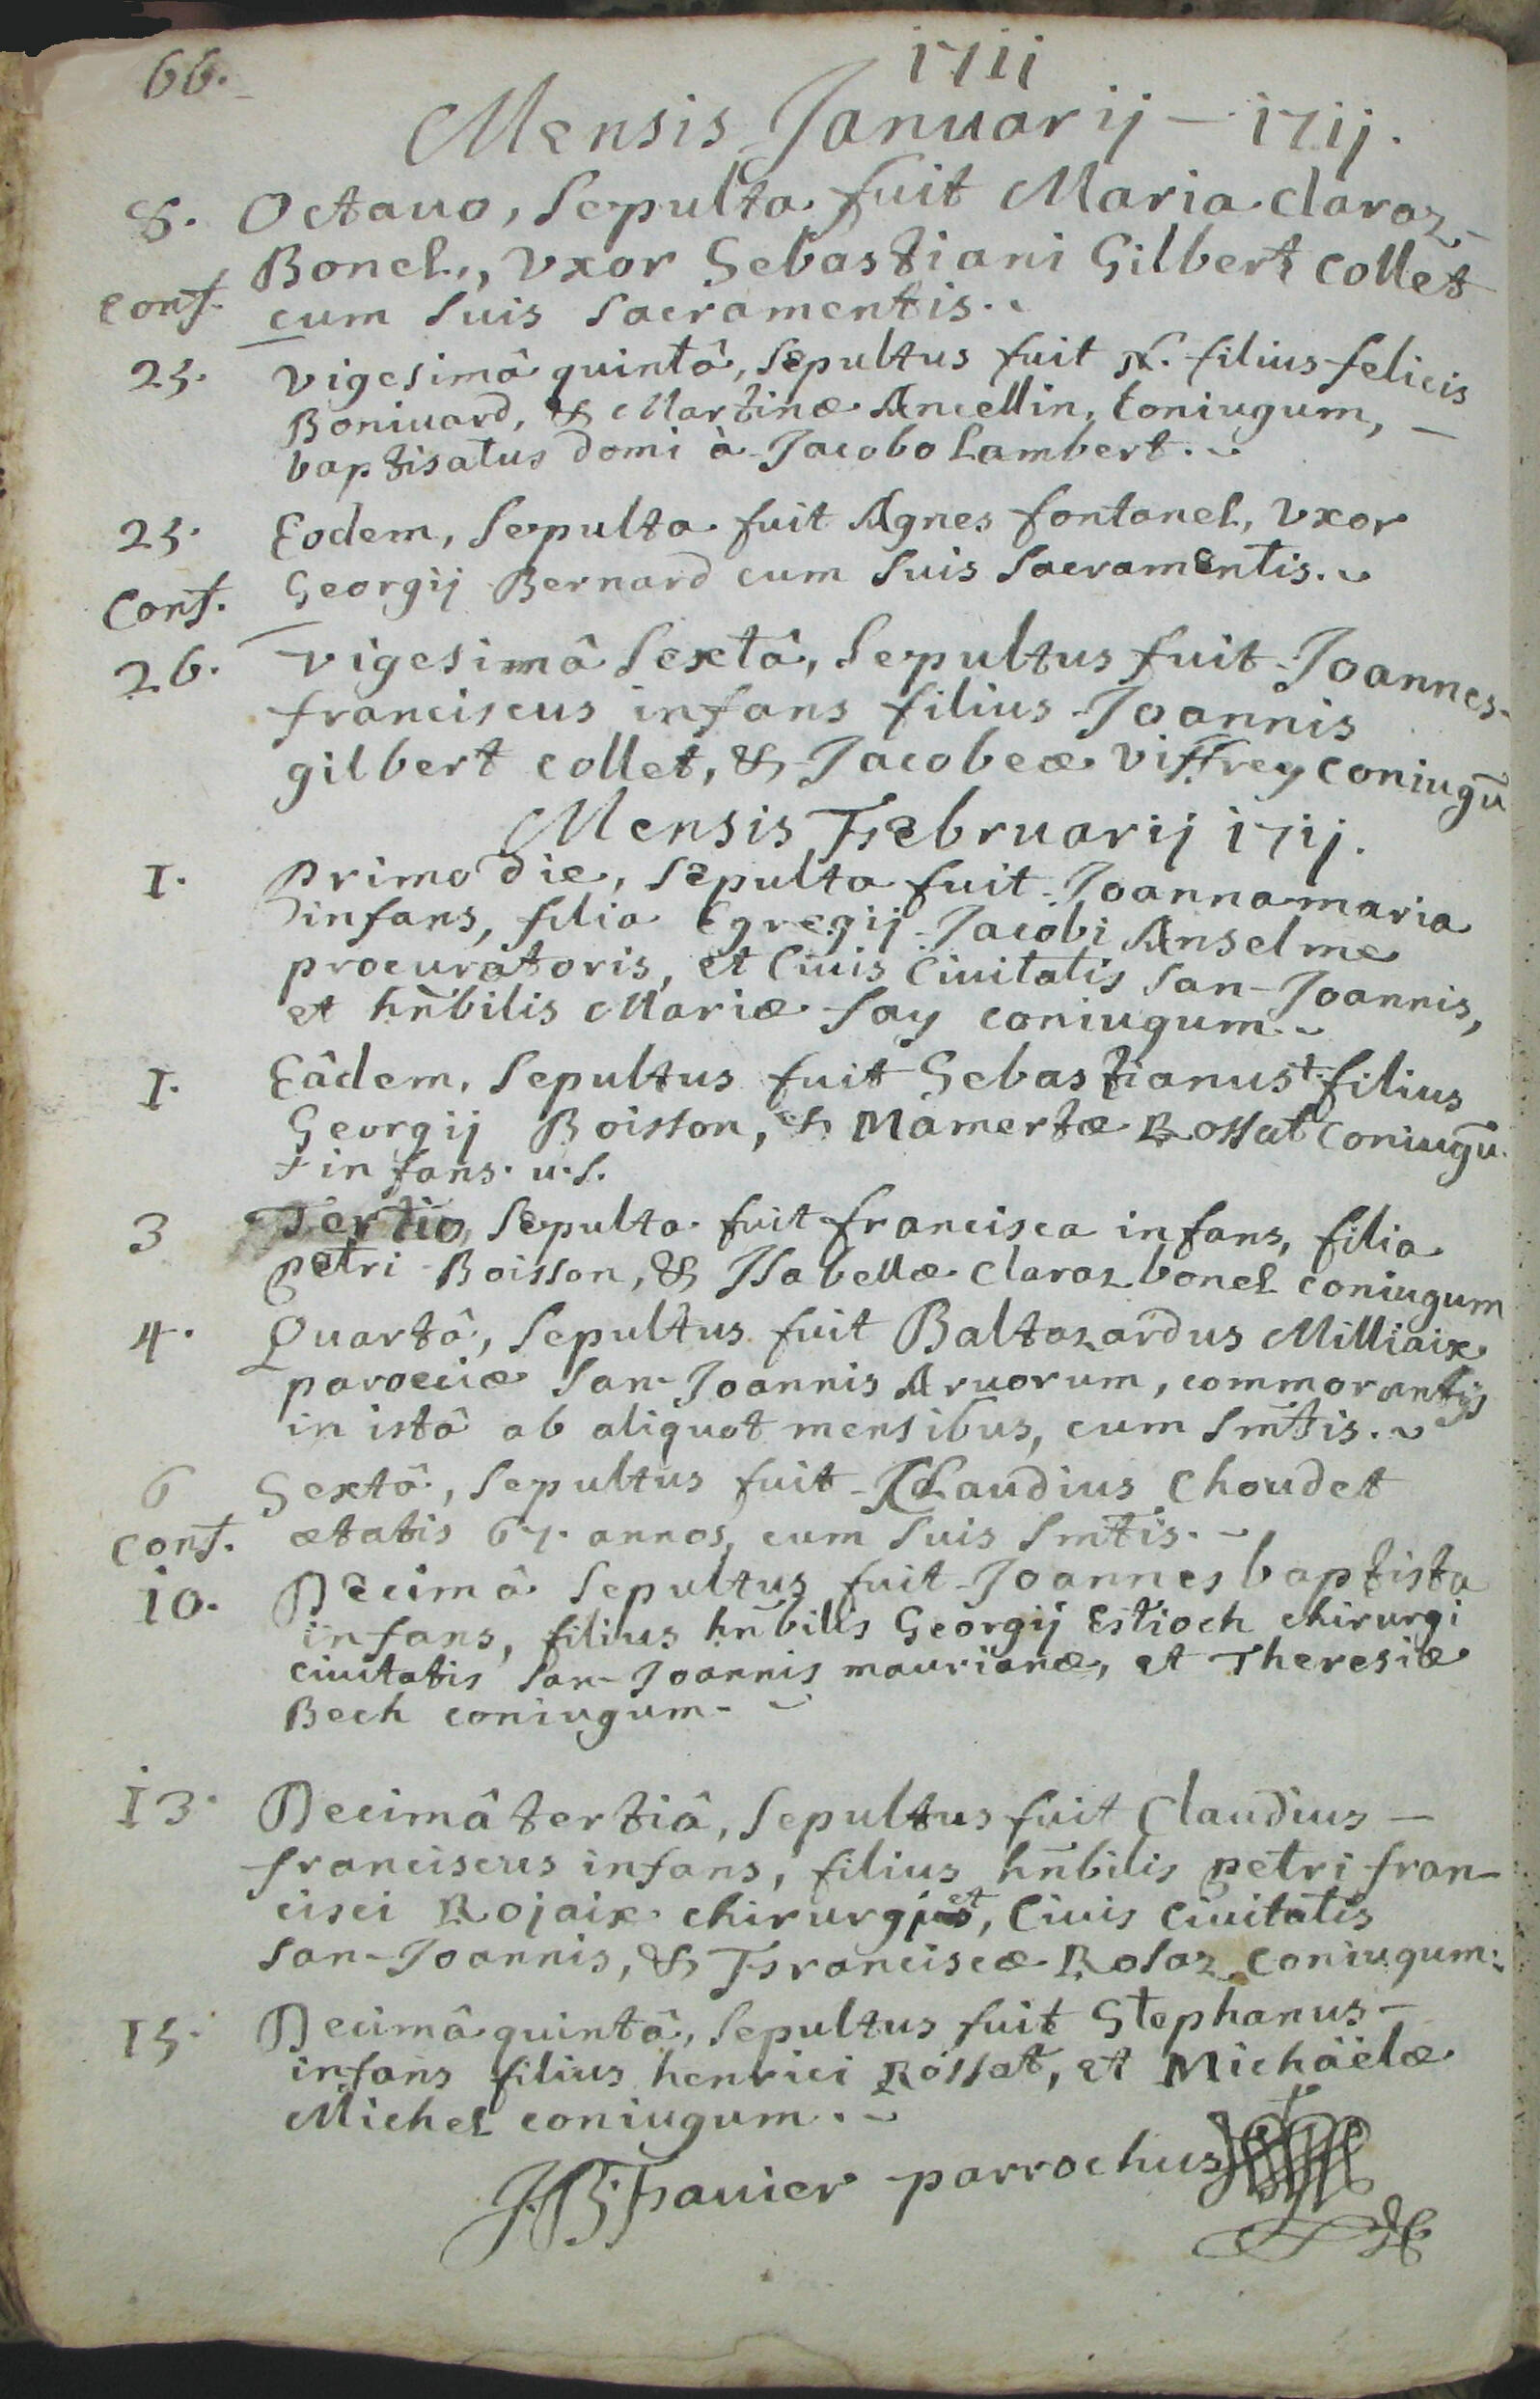 66.
1711
Mensis Januarij – 1711.
8. Octauo, sepulta fuit Maria claraz-
Bonel, Vxor Sebastiani Gilbert collet
conf. cum suis sacramentis.
25. vigesimâ quintâ, sepultus fuit N. filius felicis
Boniuard, & Martinæ Ancellin, Coniugum, –
baptisatus domi à Jacobo Lambert.
25. Eodem, sepulta fuit Agnes fontanel, vxor
Conf. Georgij Bernard cum suis sacramentis.
26. vigesimâ sextâ, sepultus fuit Joannes-
franciscus infans filius Joannis
gilbert collet, & Jacobeæ Viffrey coniugū
Mensis Februarij 1711.
1. Primo die, sepulta fuit Joannamaria
infans, filia Egregij Jacobi Anselme
procuratoris, et Ciuis Ciuitatis san-Joannis,
et hñbilis Mariæ Say coniugum.
1. Eâdem, sepultus fuit Sebastianus + filius
Georgij Boisson, & Mamertæ Rossat Coniugū.
+ infans. u.s.
3 Tertio, sepulta fuit francisca infans, filia
petri Boisson, & Isabellæ Claraz bonel coniugum
4. Quartâ, sepultus fuit Baltazardus Milliaix
parœciæ san-Joannis Aruorum, commorantis
in istâ ab aliquot mensibus, cum smtis.
6 Sextâ, sepultus fuit Claudius Choudet
conf. ætatis 67. annos, cum suis smtis.
10. Decimâ sepultus fuit Joannes baptista
infans, filius hñbilis Georgij Estioch chirurgi
ciuitatis san-Joannis maurianæ, et Theresiæ
Bech coniugum.
13. Decimâ tertiâ, sepultus fuit Claudius –
franciscus infans, filius hñbilis petri fran-
cisci Rojaix chirurgi et, Ciuis Ciuitatis
san-Joannis, & Franciscæ Rosaz coniugum.
15. Decimâ quintâ, sepultus fuit Stephanus –
infans filius henrici Rossat, et Michäelæ
Michel coniugum.
JB Fauier parrochus